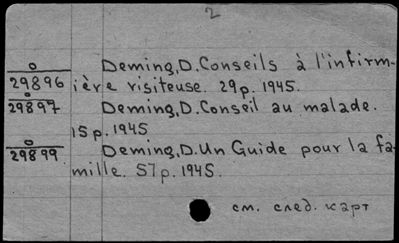 2
o
29896
Deming, D. Conseils à l'infirm-
ière visiteuse. 29p. 1945.
o
29897
Deming, D. Conseil au malade.
15p. 1945
o
29899
Deming, D. Un Guide pour la fa-
mille. 57p. 1945.
см. след. карт